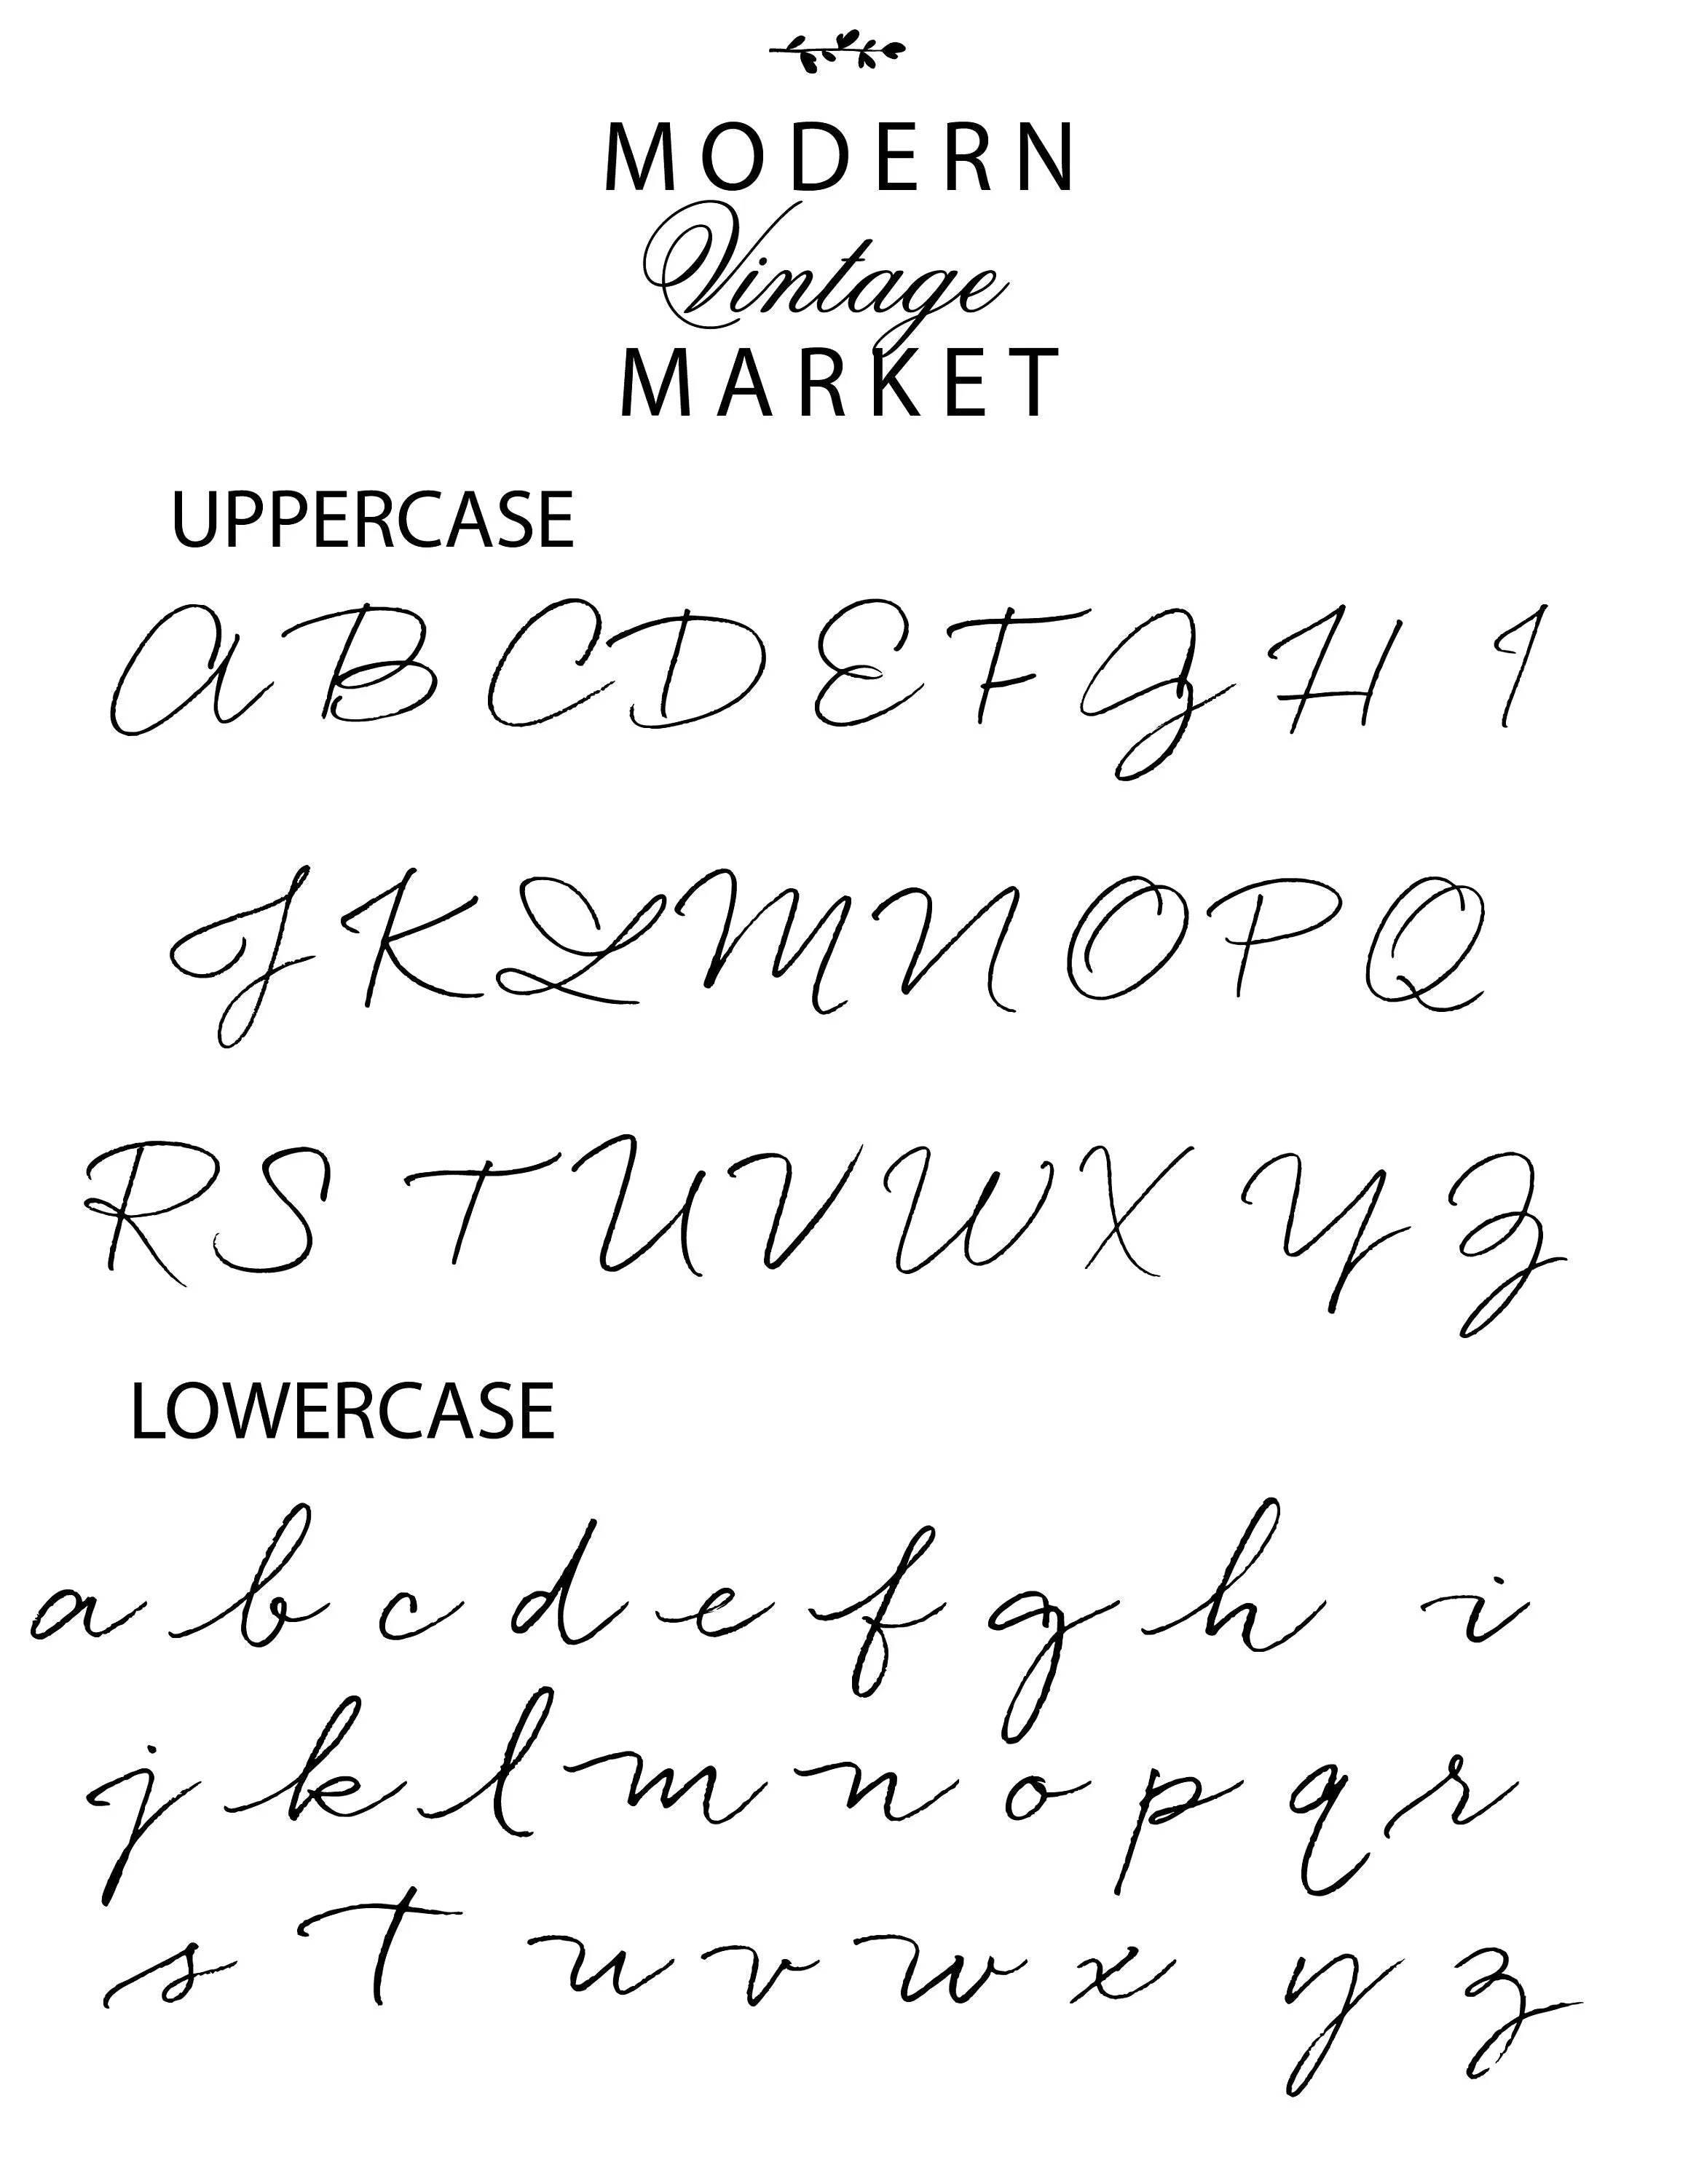 MODERN
Vintage
MARKET
UPPERCASE
A B C D E F G H I
J K L M N O P Q
R S T U V W X Y Z
LOWERCASE
a b c d e f g h i
j k l m n o p q r
s t u v w x y z